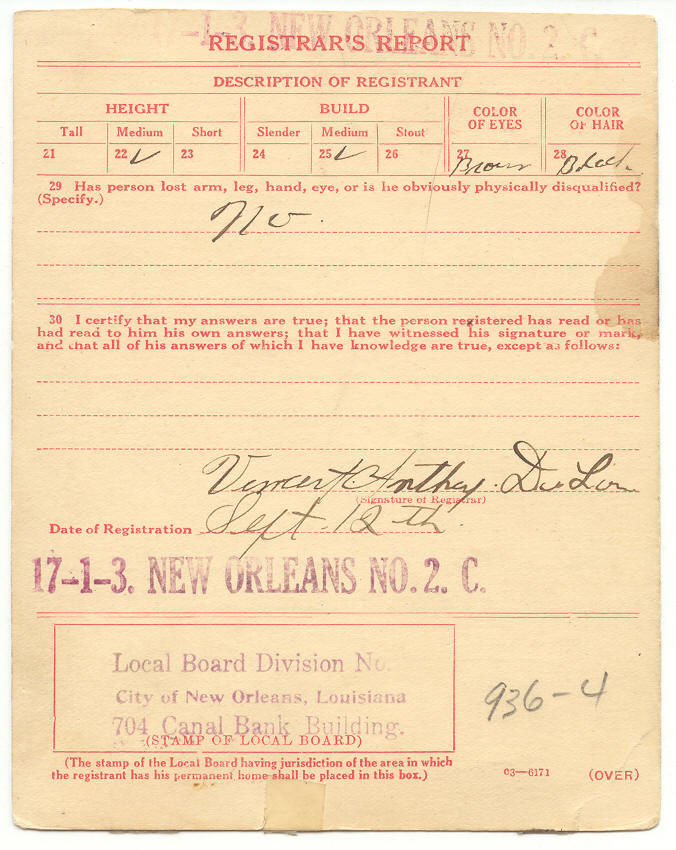 17-1-3. NEW ORLEANS NO. 2. C.
REGISTRAR'S REPORT
DESCRIPTION OF REGISTRANT
HEIGHT BUILD COLOR OF EYES COLOR OF HAIR
Tall Medium Short Slender Medium Stout
21 22 ✓ 23 24 25 ✓ 26 27 Brown 28 Black
29 Has person lost arm, leg, hand, eye, or is he obviously physically disqualified?
(Specify.)
No.
30 I certify that my answers are true; that the person registered has read or has
had read to him his own answers; that I have witnessed his signature or mark,
and that all of his answers of which I have knowledge are true, except as follows:
Vincent Anthony
(Signature of Registrar)
Date of Registration Sept. 12th.
17-1-3. NEW ORLEANS NO. 2. C.
Local Board Division No.
City of New Orleans, Louisiana
704 Canal Bank Building.
(STAMP OF LOCAL BOARD)
(The stamp of the Local Board having jurisdiction of the area in which
the registrant has his permanent home shall be placed in this box.)
936-4
03—6171 (OVER)